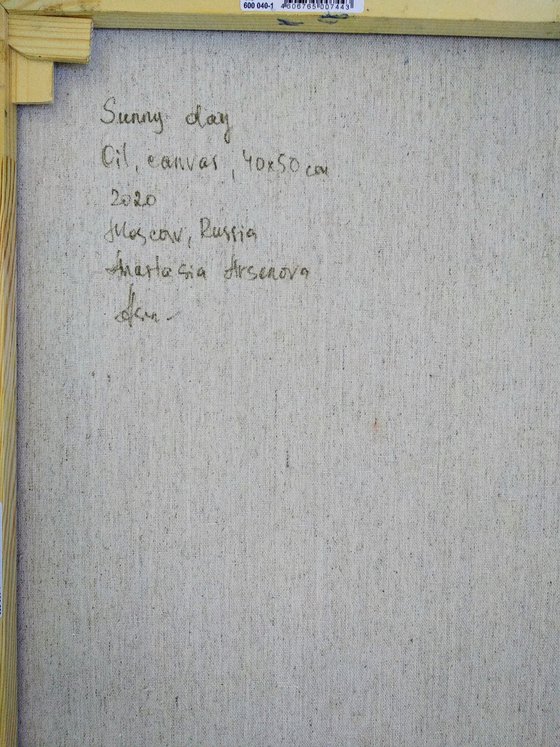 600 040-1 4606765007443
Sunny day
Oil, canvas, 40x50 cm
2020
Moscow, Russia
Anastasia Arsenova